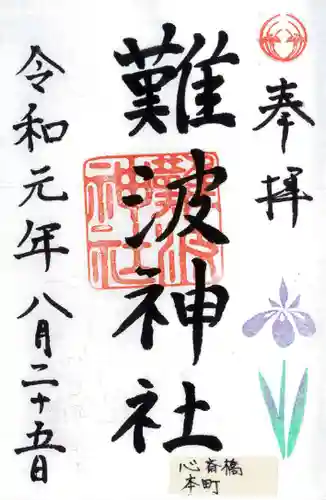 奉拝
難波神社
難波神社
令和元年八月二十五日
心斎橋
本町